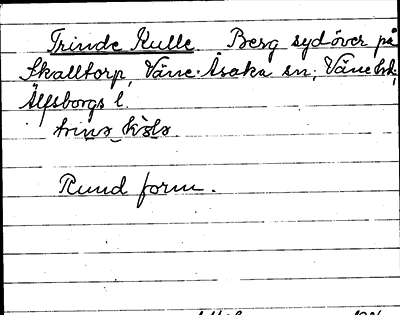 Trinde Kulle. Berg sydöver på
Skalltorp, Väne-Åsaka sn, Väne hd,
Älfsborgs l.
Rund form.